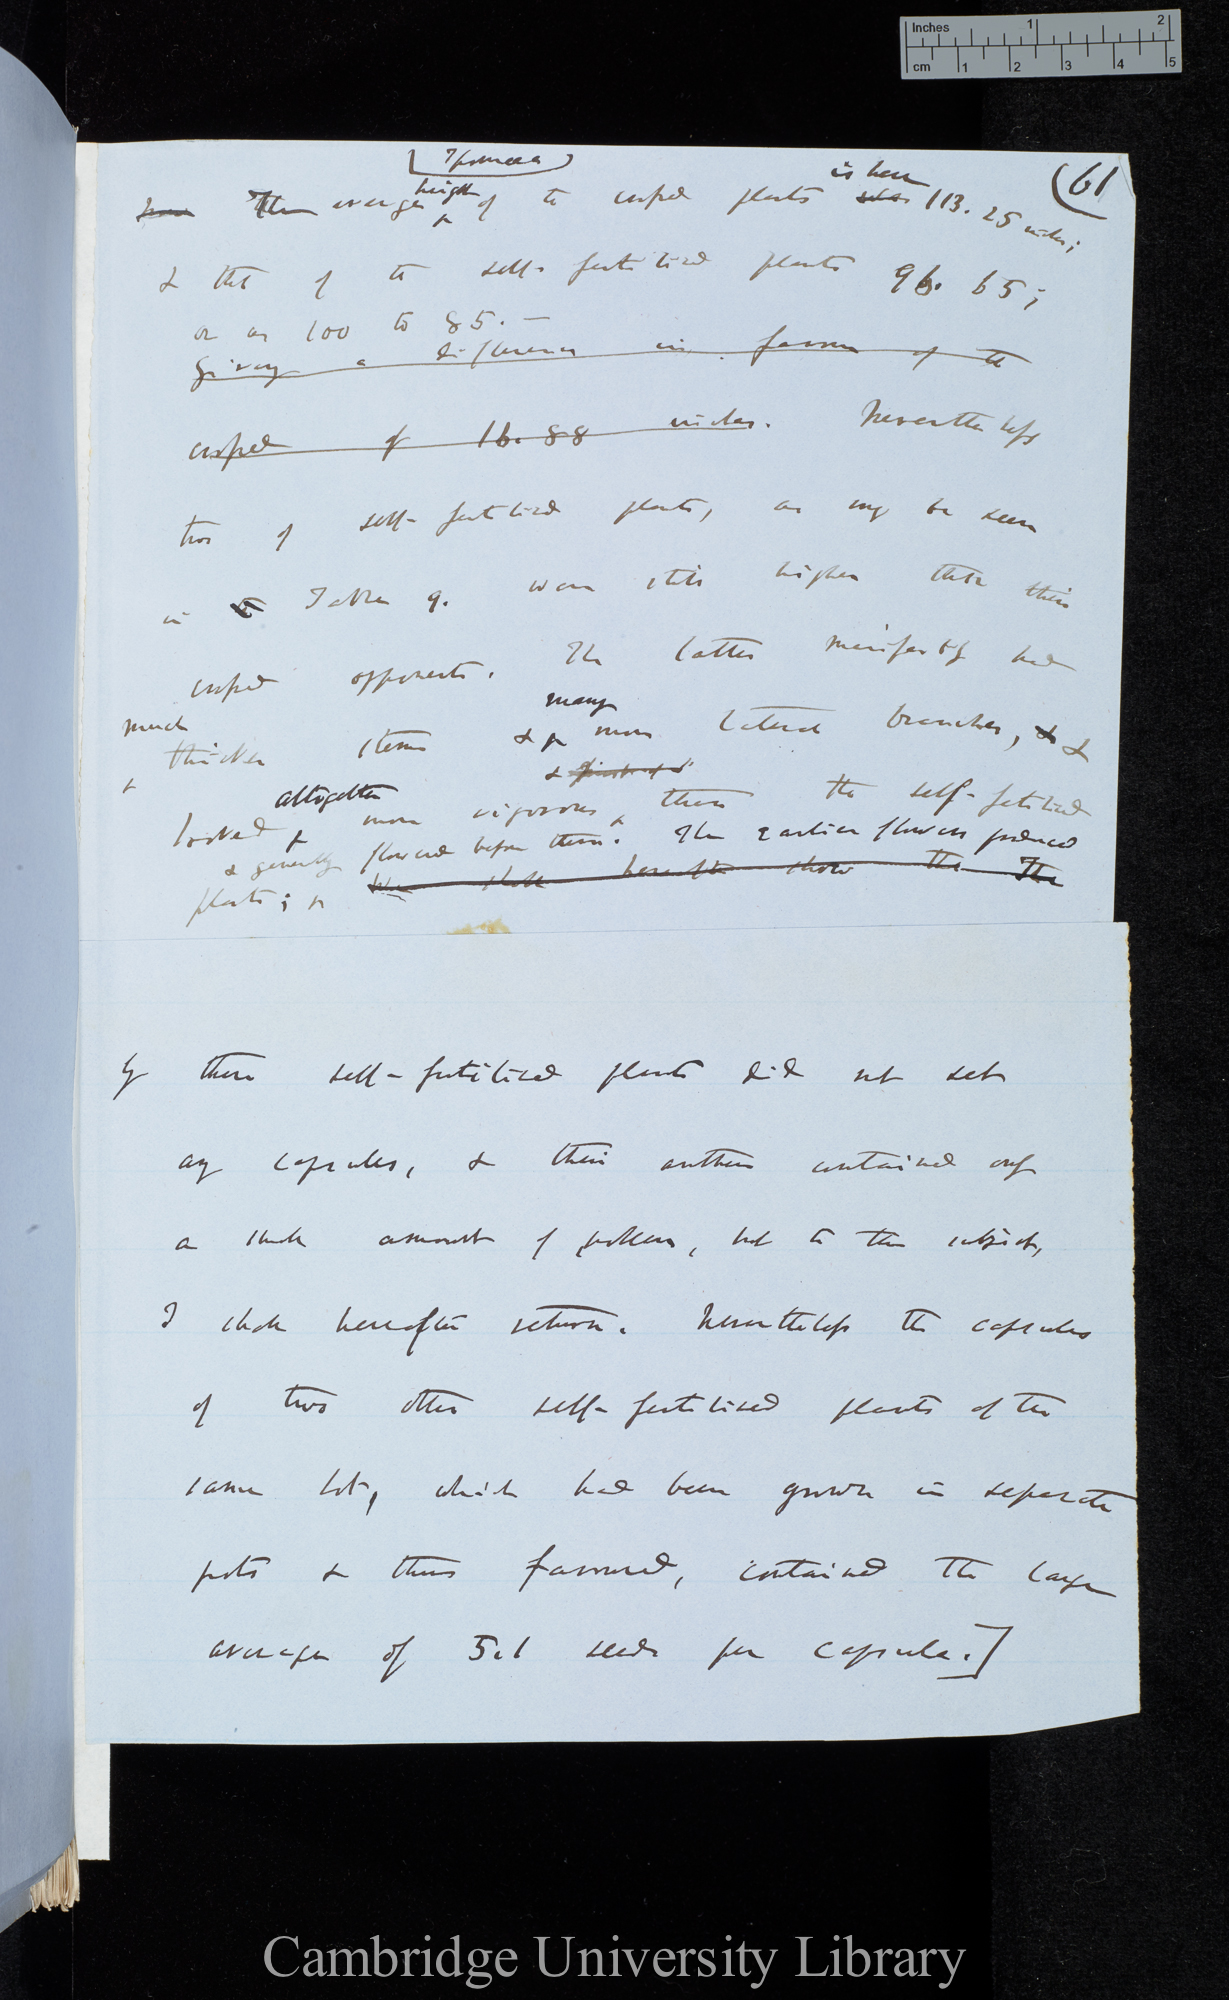 Inches 1 2
cm 1 2 3 4 5
Ipomœa
(61
height
is here
The average of the crossed plants was 113.25 inches;
& that of the self-fertilised plants 96.65;
or as 100 to 85.—
giving a difference in favour of the
crossed of 16.88 inches. Nevertheless
two of self-fertilised plants, as may be seen
in the Table 9. were still higher than their
crossed opponents. The latter manifestly had
much many
thicker stems & more lateral branches, & &
&
altogether
looked more vigorous than the self-fertilised
& generally flowered before them. The earlier flowers produced
plants; We shall hereafter show the The
by these self-fertilised plants did not set
any capsules, & their anthers contained only
a small amount of pollen, but to this subject,
I shall hereafter return. Nevertheless the capsules
of two other self-fertilised plants of the
same lot, which had been grown in separate
pots & thus favoured, contained the large
average of 5.1 seeds per capsule.]
Cambridge University Library